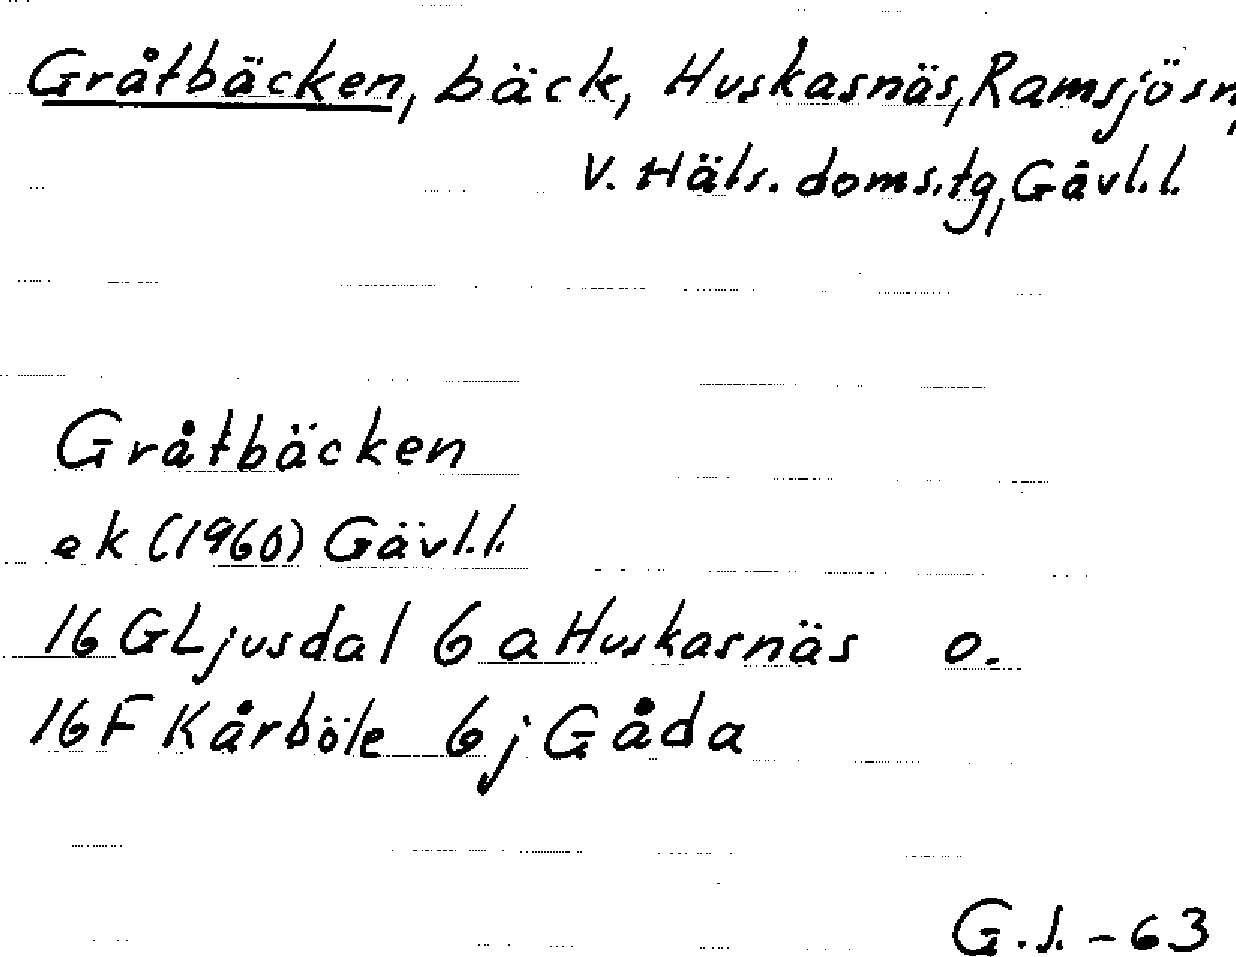 Gråtbäcken, bäck, Huskasnäs, Ramsjö sn,
V. Häls. doms.tg, Gävl.l.
Gråtbäcken
ek (1960) Gävl.l.
16 G Ljusdal 6 a Huskasnäs o.
16 F Kårböle 6 j Gåda
G.S. - 63